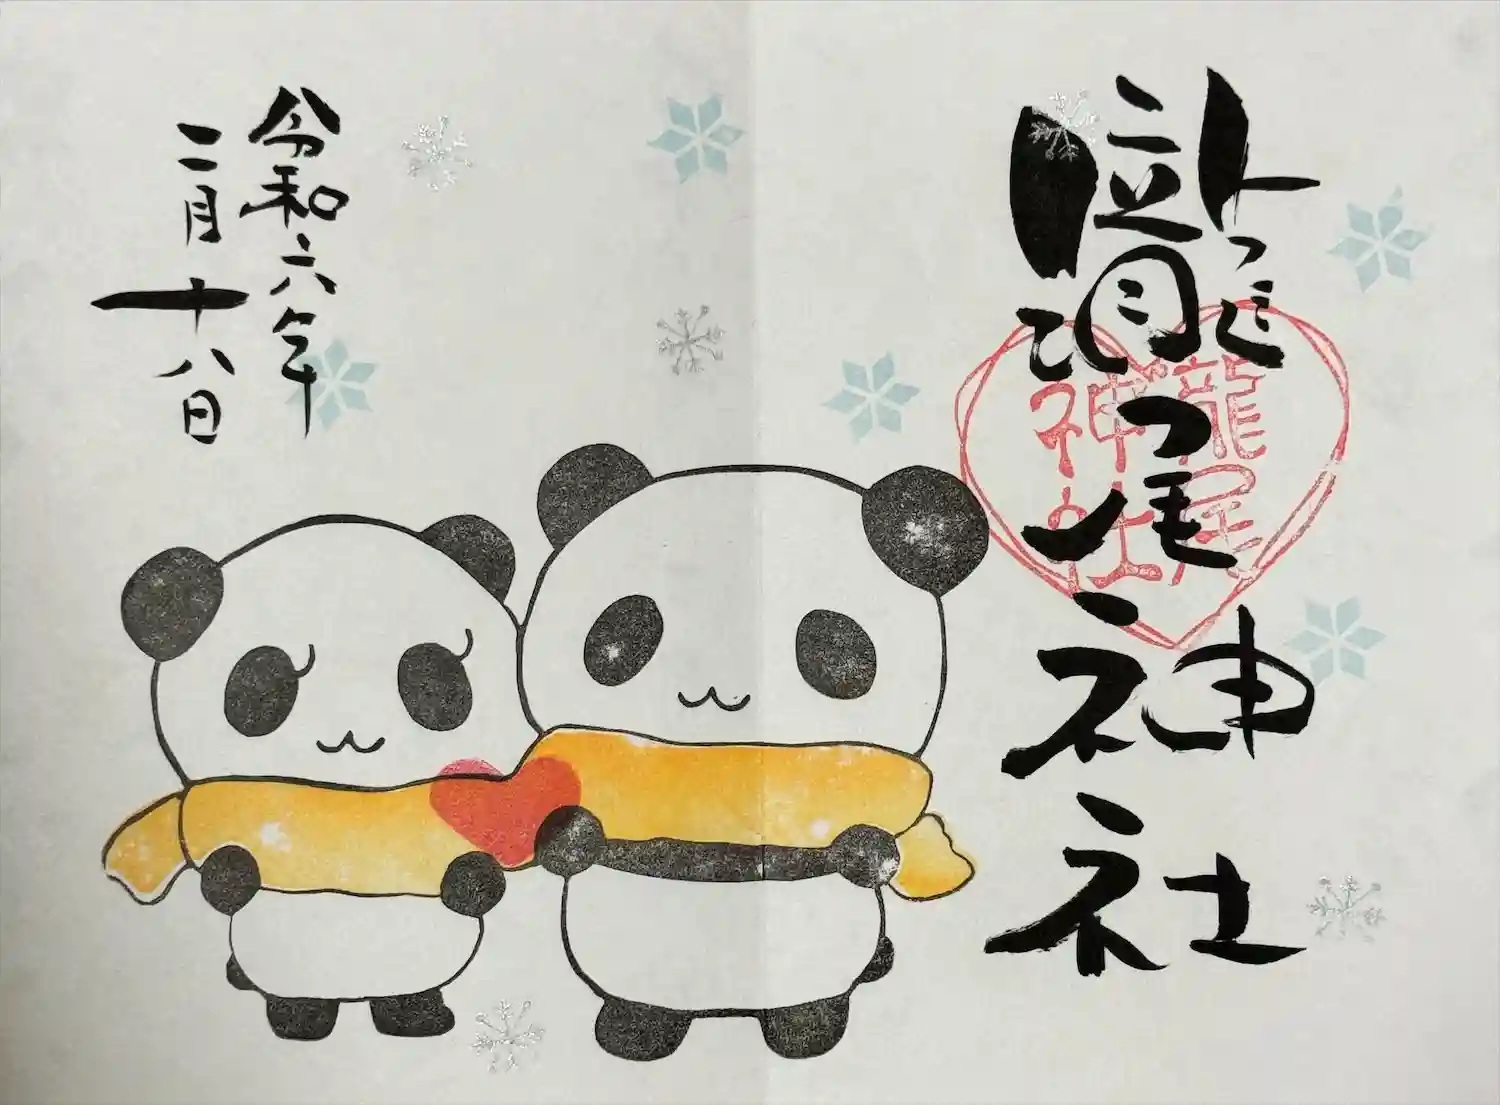 龍尾神社
龍尾
神社
令和六年
二月十八日